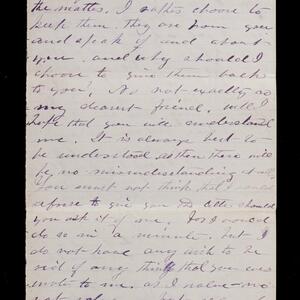 the matter. I rather choose to
keep them. they are from you
and speak of and about
you. and why should I
choose to give them back
to you? No not exactly so
my dearest friend. will I
hope that you will understand
me. It is always best to
be understood as then there will
be no misunderstanding at all.
You must not think that I would
refuse to give you the letter should
you ask it of me, for I would
do so in a minute. but I
do not have any wish to be
rid of any thing that you ever
wrote to me. as I value no